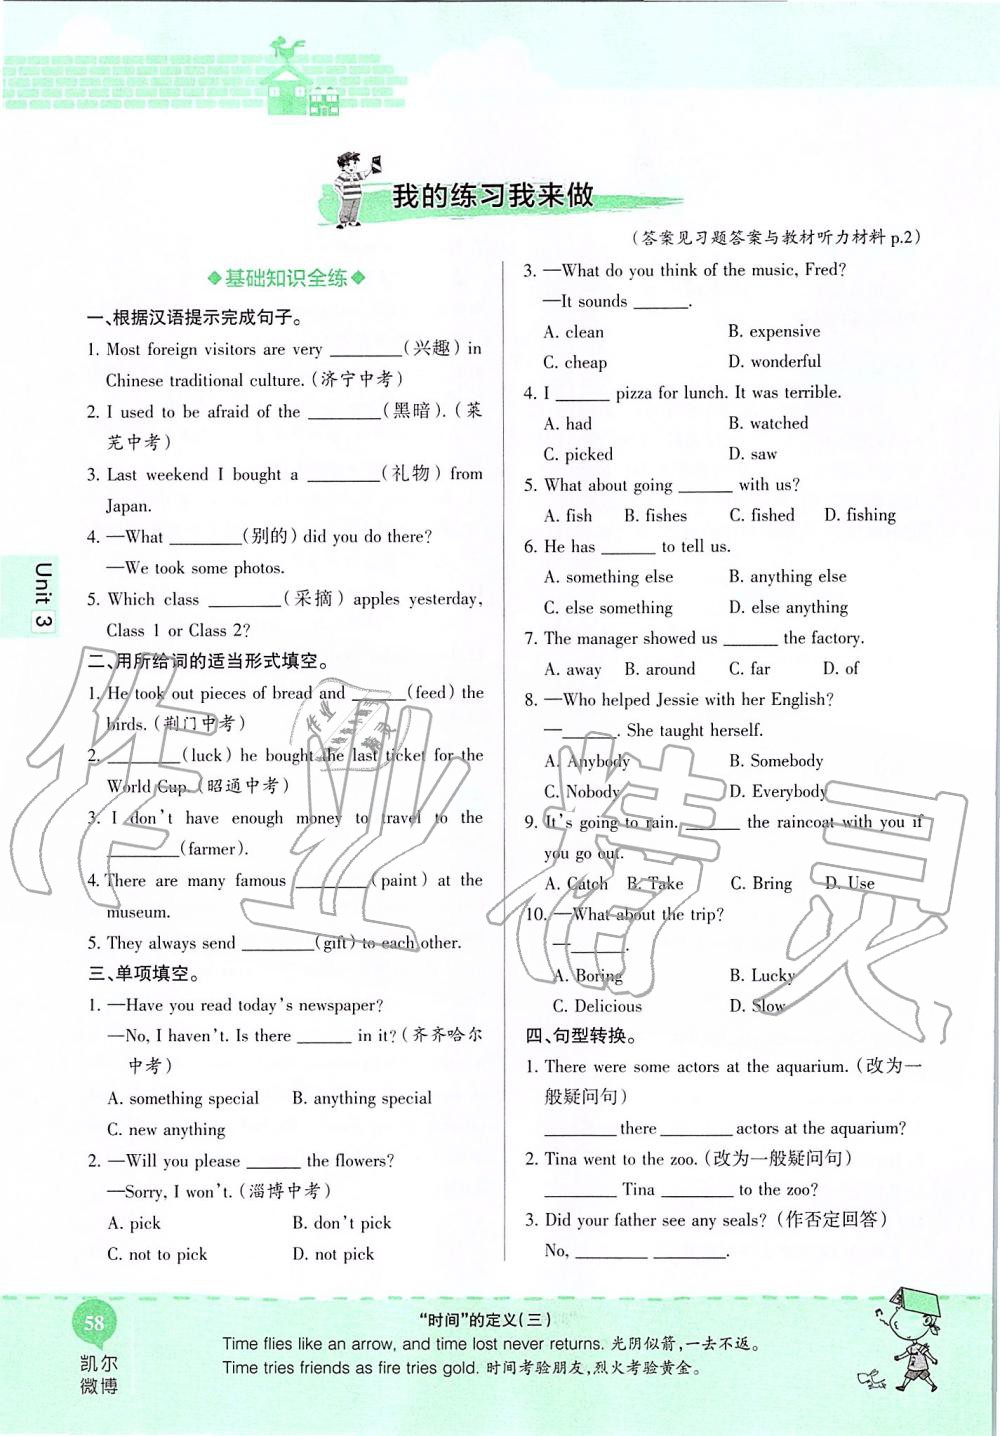 我的练习我来做
（答案见习题答案与教材听力材料 p.2）
基础知识全练
一、根据汉语提示完成句子。
1. Most foreign visitors are very ________(兴趣) in
Chinese traditional culture.（济宁中考）
2. I used to be afraid of the ________(黑暗).（莱
芜中考）
3. Last weekend I bought a ________(礼物) from
Japan.
4. —What ________(别的) did you do there?
—We took some photos.
5. Which class ________(采摘) apples yesterday,
Class 1 or Class 2?
二、用所给词的适当形式填空。
1. He took out pieces of bread and ______(feed) the
birds.（荆门中考）
2. ________(luck) he bought the last ticket for the
World Cup.（昭通中考）
3. I don't have enough money to travel to the
________(farmer).
4. There are many famous ________(paint) at the
museum.
5. They always send ________(gift) to each other.
三、单项填空。
1. —Have you read today's newspaper?
—No, I haven't. Is there ______ in it?（齐齐哈尔
中考）
A. something special B. anything special
C. new anything
2. —Will you please ______ the flowers?
—Sorry, I won't.（淄博中考）
A. pick B. don't pick
C. not to pick D. not pick
3. —What do you think of the music, Fred?
—It sounds ______.
A. clean B. expensive
C. cheap D. wonderful
4. I ______ pizza for lunch. It was terrible.
A. had B. watched
C. picked D. saw
5. What about going ______ with us?
A. fish B. fishes C. fished D. fishing
6. He has ______ to tell us.
A. something else B. anything else
C. else something D. else anything
7. The manager showed us ______ the factory.
A. away B. around C. far D. of
8. —Who helped Jessie with her English?
—______. She taught herself.
A. Anybody B. Somebody
C. Nobody D. Everybody
9. It's going to rain. ______ the raincoat with you if
you go out.
A. Catch B. Take C. Bring D. Use
10. —What about the trip?
—______.
A. Boring B. Lucky
C. Delicious D. Slow
四、句型转换。
1. There were some actors at the aquarium.（改为一
般疑问句）
________ there ________ actors at the aquarium?
2. Tina went to the zoo.（改为一般疑问句）
________ Tina ________ to the zoo?
3. Did your father see any seals?（作否定回答）
No, ________ ________.
Unit 3
58
凯尔
微博
“时间”的定义（三）
Time flies like an arrow, and time lost never returns. 光阴似箭，一去不返。
Time tries friends as fire tries gold. 时间考验朋友，烈火考验黄金。
作业精灵
作业
精灵